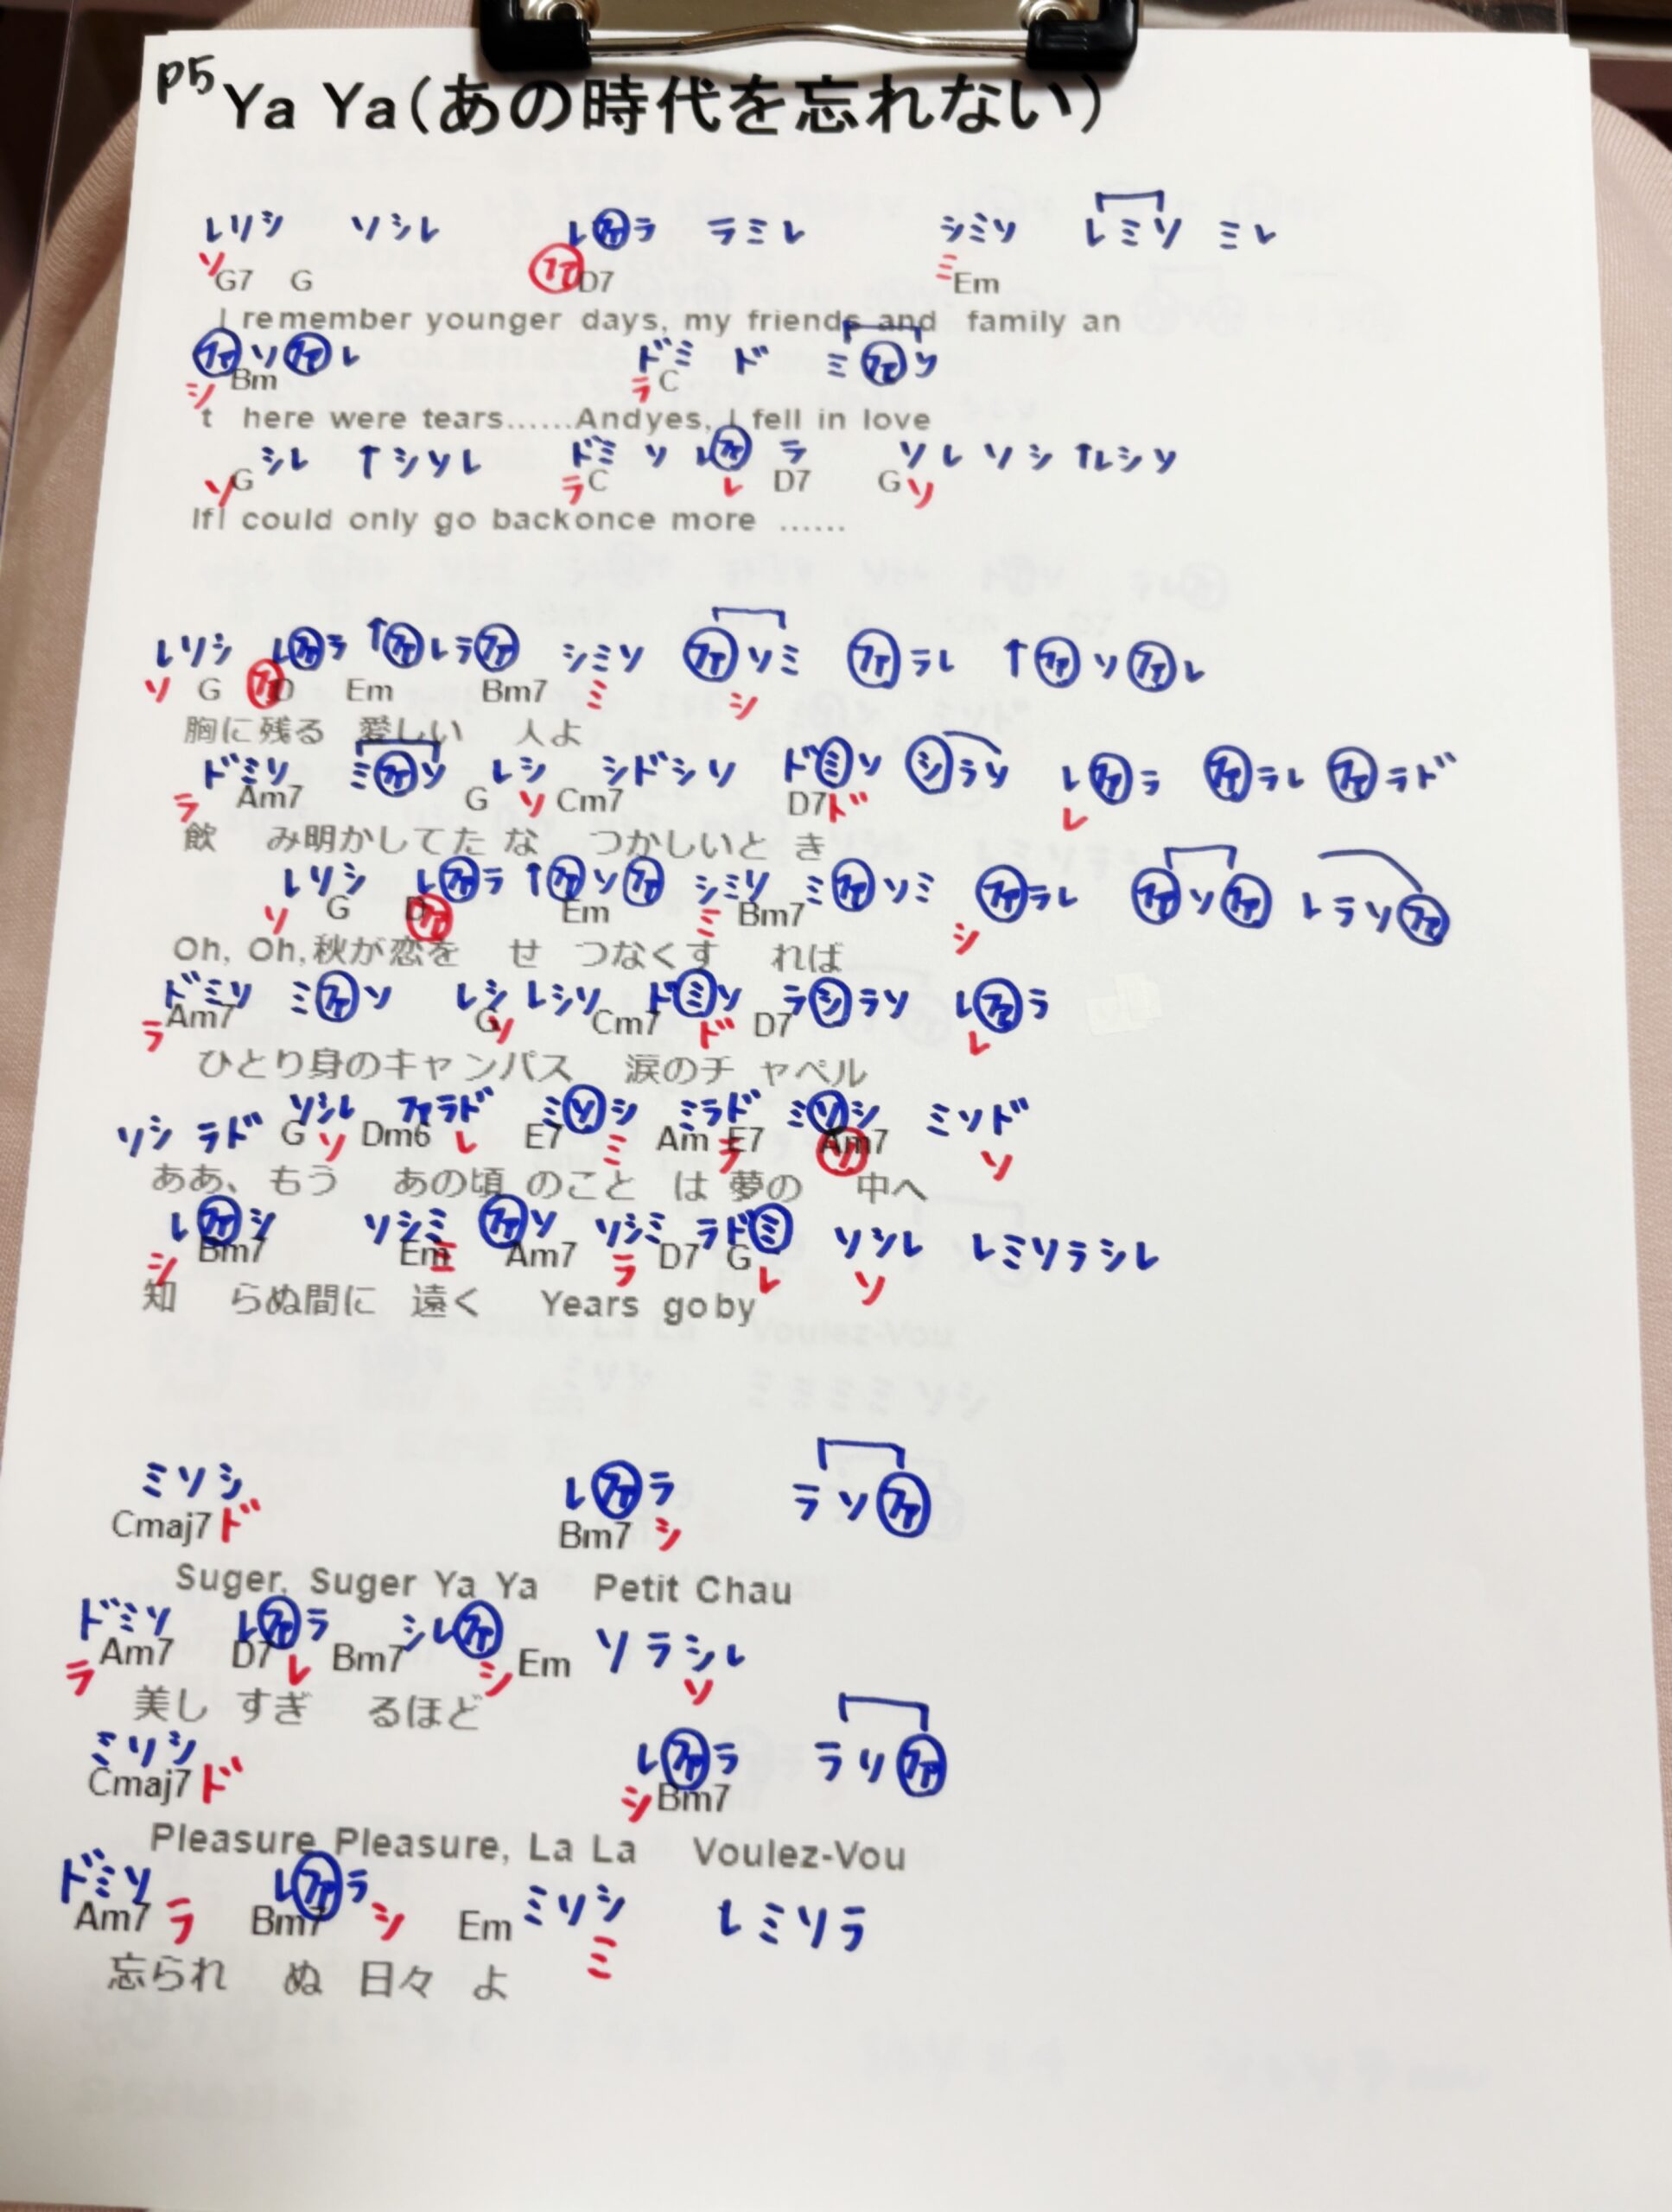 p5
Ya Ya(あの時代を忘れない)
レソシ ソシレ レファラ ラミレ シミソ レミソ ミレ
ソ G7 G ファ D7 ミ Em
I remember younger days, my friends and family an
ファソファレ ドミ ド ミファソ
シ Bm ラ C
t here were tears......Andyes, I fell in love
シレ ↑シソレ ドミソ レファ ラ ソレソシ ↑レシソ
ソ G ラ C レ D7 G ソ
IfI could only go backonce more ......
レソシ レファラ ↑ファレラファ シミソ ファソミ ファラレ ↑ファソファレ
ソ G ファ D Em Bm7 ミ シ
胸に残る 愛しい 人よ
ドミソ ミファソ レシ シドシソ ドミソ シラソ レファラ ファラレ ファラド
ラ Am7 G ソ Cm7 D7 ド レ
飲 み明かしてた な つかしいと き
レソシ レファラ ↑ファソファ シミソ ミファソミ ファラレ ファソファ レラソファ
ソ G D ファ Em ミ Bm7 シ
Oh, Oh,秋が恋を せ つなくす れば
ドミソ ミファソ レシ レシソ ドミソ ラシラソ レファラ
ラ Am7 G ソ Cm7 ド D7 レ
ひとり身のキャンパス 涙のチ ャペル
ソシ ラド ソシレ ファラド ミソシ ミラド ミソシ ミソド
G ソ Dm6 レ E7 ミ Am E7 ラ Am7 ソ ソ
ああ、もう あの頃 のこと は 夢の 中へ
レファシ ソシミ ファソ ソシミ ラドミ ソシレ レミソラシレ
シ Bm7 Em ミ Am7 ラ D7 G レ ソ
知 らぬ間に 遠く Years goby
ミソシ レファラ ラソファ
Cmaj7 ド Bm7 シ
Suger, Suger Ya Ya Petit Chau
ドミソ レファラ シレファ ソラシレ
ラ Am7 D7 レ Bm7 シ Em ソ
美し すぎ るほど
ミソシ レファラ ラソファ
Cmaj7 ド シ Bm7
Pleasure Pleasure, La La Voulez-Vou
ドミソ レファラ ミソシ レミソラ
Am7 ラ Bm7 シ Em ミ
忘られ ぬ 日々 よ